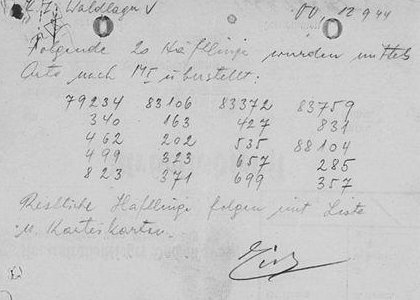 Waldlager V 12.9.44
Folgende 20 Häftlinge wurden mittels
Auto nach M I überstellt:
79234 83106 83372 83759
340 163 427 831
462 202 535 88104
499 323 657 285
823 371 699 357
Restliche Häftlinge folgen mit Liste
u. Karteikarten.